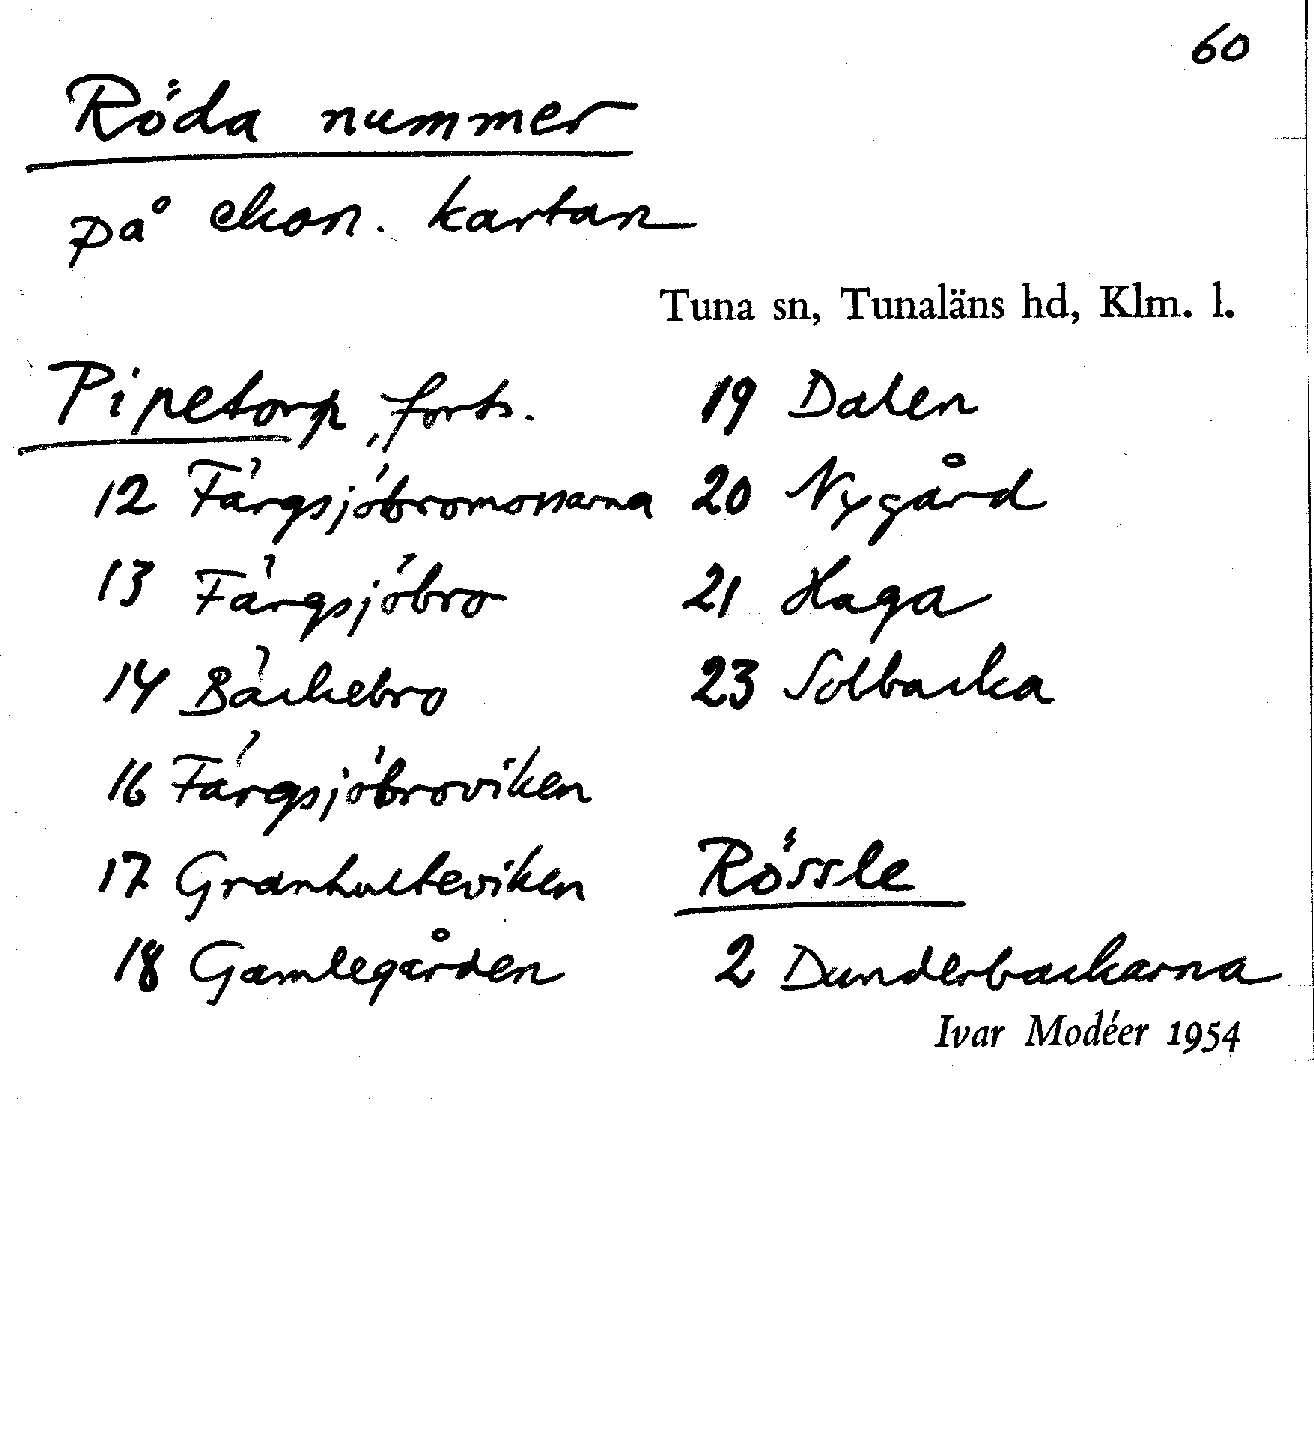 60
Röda nummer
på ekon. kartan
Tuna sn, Tunaläns hd, Klm. l.
Pipetorp, forts.
12 Färgsjöbromossarna
13 Färgsjöbro
14 Bäckebro
16 Färgsjöbroviken
17 Granhulteviken
18 Gamlegården
19 Dalen
20 Nygård
21 Haga
23 Solbacka
Rössle
2 Dunderbackarna
Ivar Modéer 1954